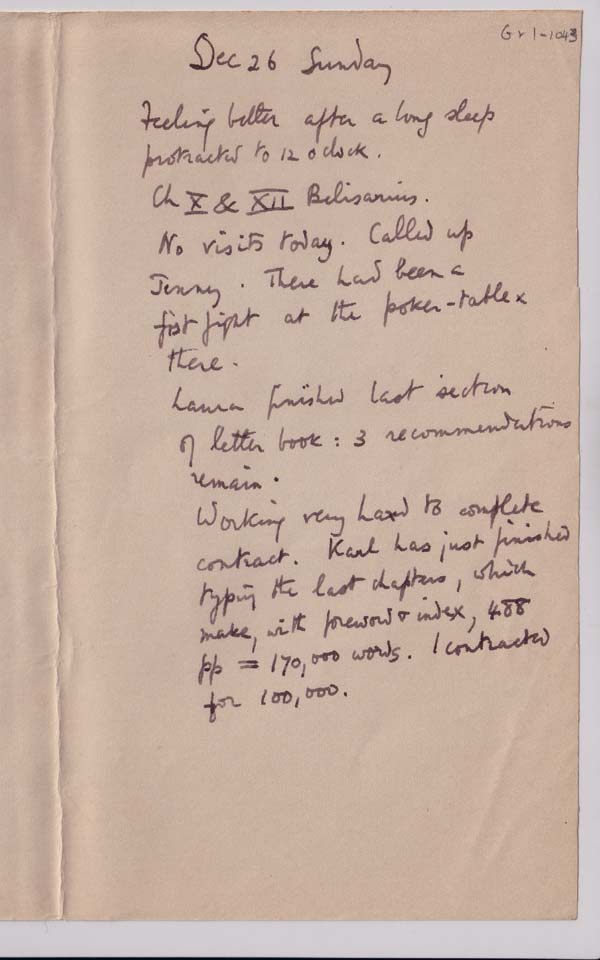 Gr 1-1043
Dec 26 Sunday
Feeling better after a long sleep
protracted to 12 o'clock.
Ch X & XII Belisarius.
No visits today. Called up
Jenny. There had been a
fist fight at the poker-table x
there.
Laura finished last section
of letter book: 3 recommendations
remain.
Working very hard to complete
contract. Karl has just finished
typing the last chapters, which
make, with foreword & index, 488
pp = 170,000 words. I contracted
for 100,000.